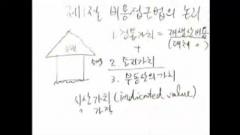 제1절 비용접근법의 논리
1. 건물가치 = 재생산비용
+ (대체 〃)
2. 토지가치
3. 부동산의 가치
시산가치 (indicated value)
〃 가격